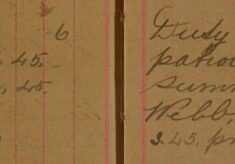 6
.45.
.45.
Duty
patrol
summ
Webb
3.45. p